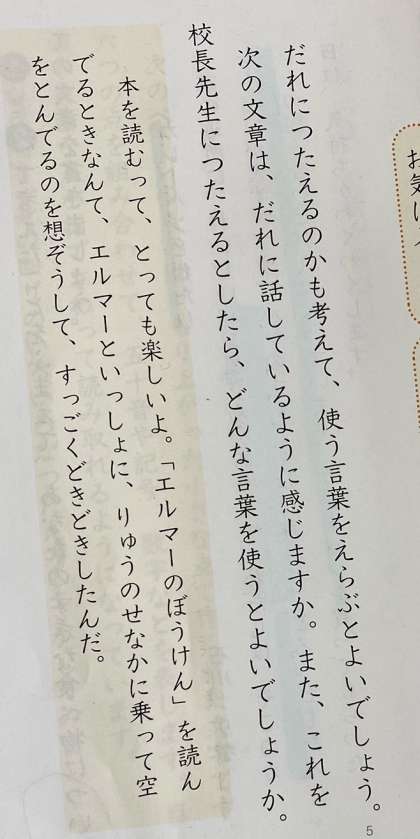 お気に
だれにつたえるのかも考えて、使う言葉をえらぶとよいでしょう。
次の文章は、だれに話しているように感じますか。また、これを
校長先生につたえるとしたら、どんな言葉を使うとよいでしょうか。
本を読むって、とっても楽しいよ。「エルマーのぼうけん」を読ん
でるときなんて、エルマーといっしょに、りゅうのせなかに乗って空
をとんでるのを想ぞうして、すっごくどきどきしたんだ。
5